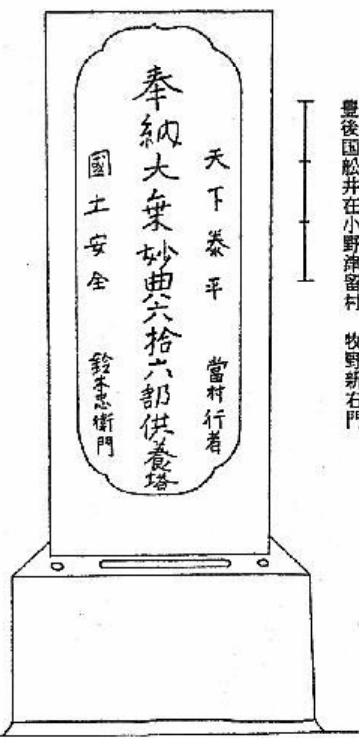 豊後国舩井在小野津留村　牧野新右門
天下泰平　當村行者
奉納大乗妙典六拾六部供養塔
國土安全　鈴木忠衛門